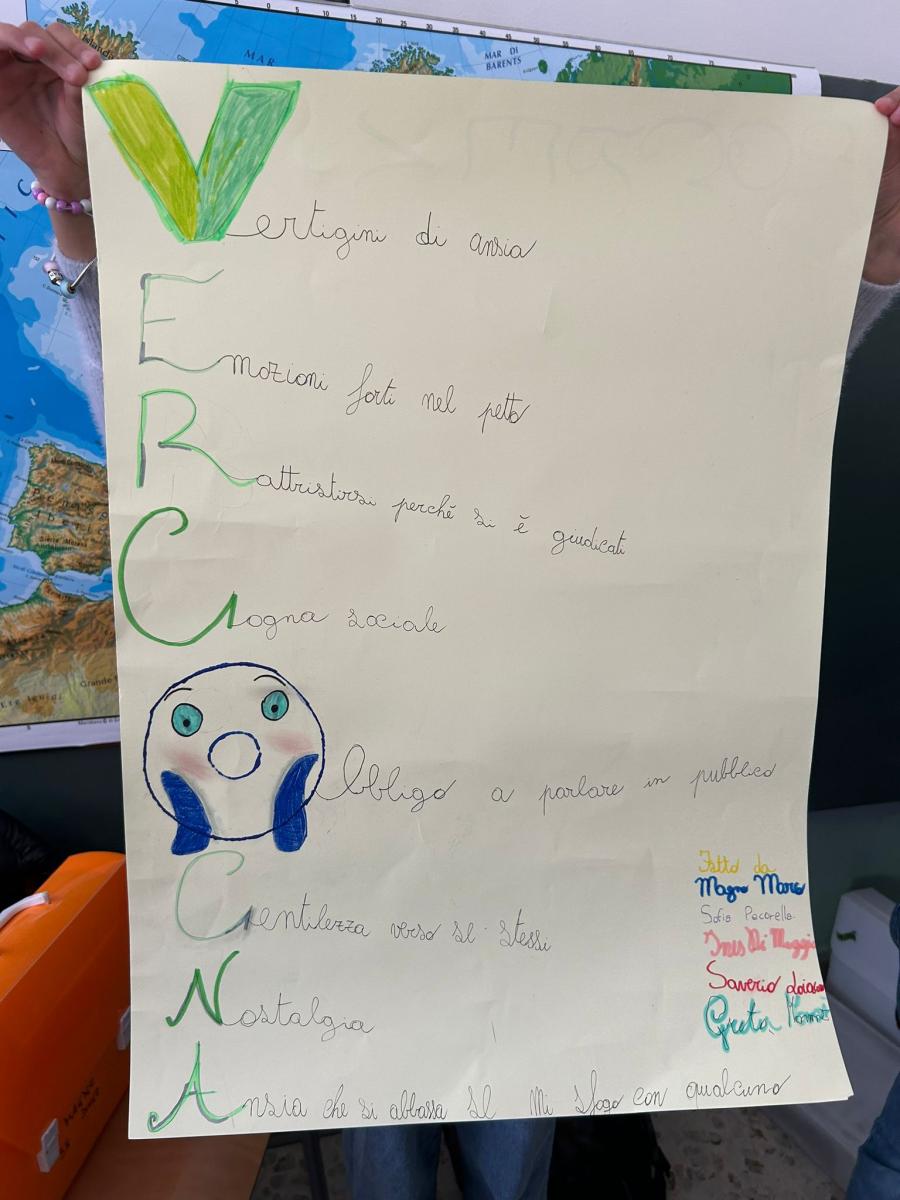 MAR
MAR DI
BARENTS
Vertigini di ansia
Emozioni forti nel petto
Rattristirsi perché si è giudicati
Gogna sociale
Obbligo a parlare in pubblico
Gentilezza verso se stessi
Nostalgia
Ansia che si abbassa se mi sfogo con qualcuno
Fatto da
Magno Marco
Sofia Pecorella
Ines Di Maggio
Saverio
Greta